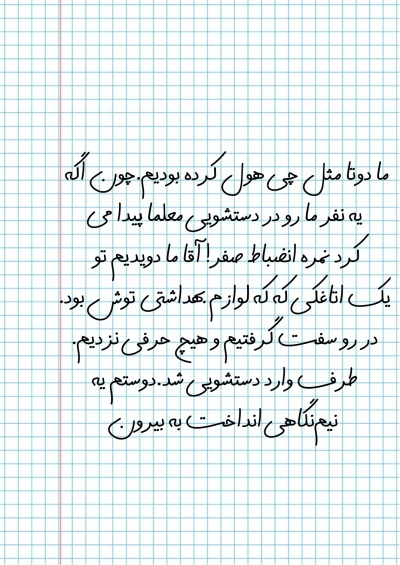 ما دوتا مثل چی هول کرده بودیم.چون اگه
یه نفر ما رو در دستشویی معلما پیدا می
کرد نمره انضباط صفر! آقا ما دویدیم تو
یک اتاغکی که که لوازم.بهداشتی توش بود.
در رو سفت گرفتیم و هیچ حرفی نزدیم.
طرف وارد دستشویی شد.دوستم یه
نیم‌نگاهی انداخت به بیرون